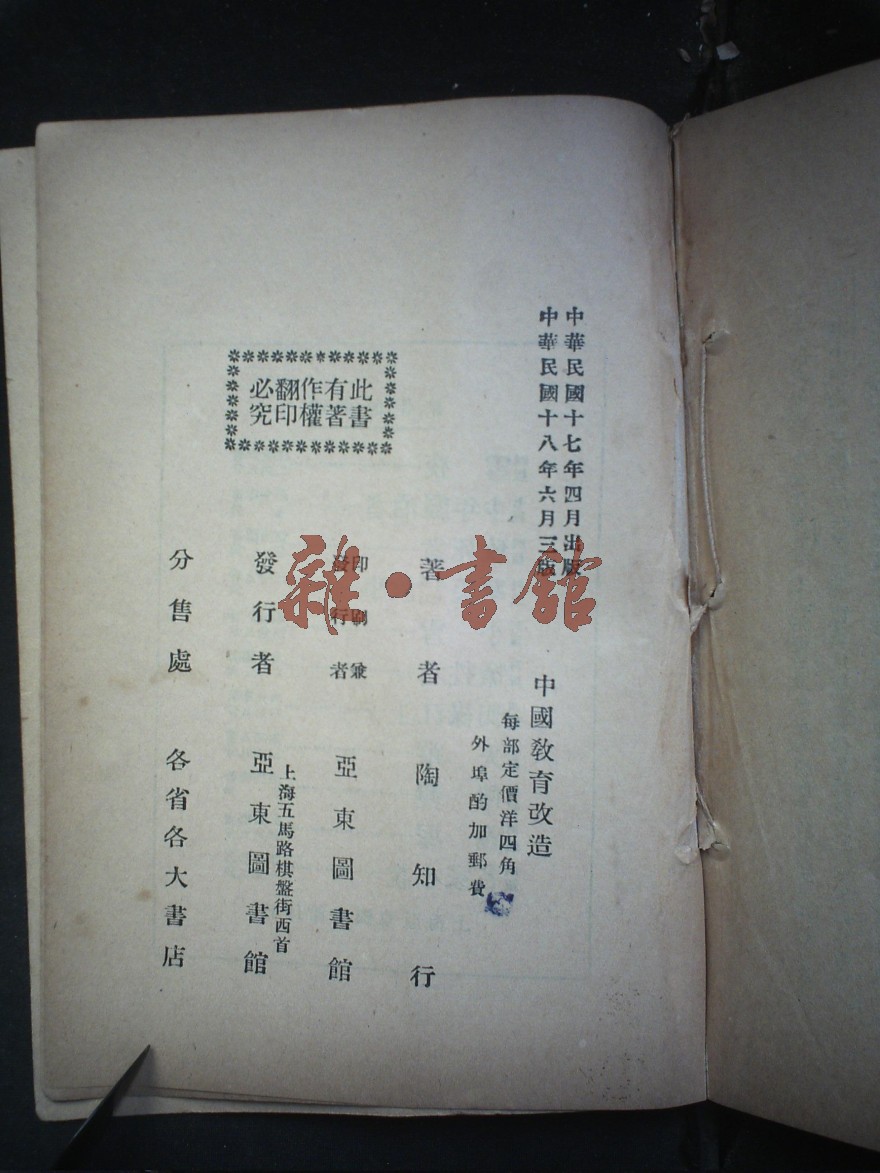 中華民國十七年四月出版
中華民國十八年六月三版
中國教育改造
每部定價洋四角
外埠酌加郵費
著者 陶知行
印刷兼
發行者 亞東圖書館
上海五馬路棋盤街西首
發行者 亞東圖書館
分售處 各省各大書店
此書
有著
作權
翻印
必究
雜·書館